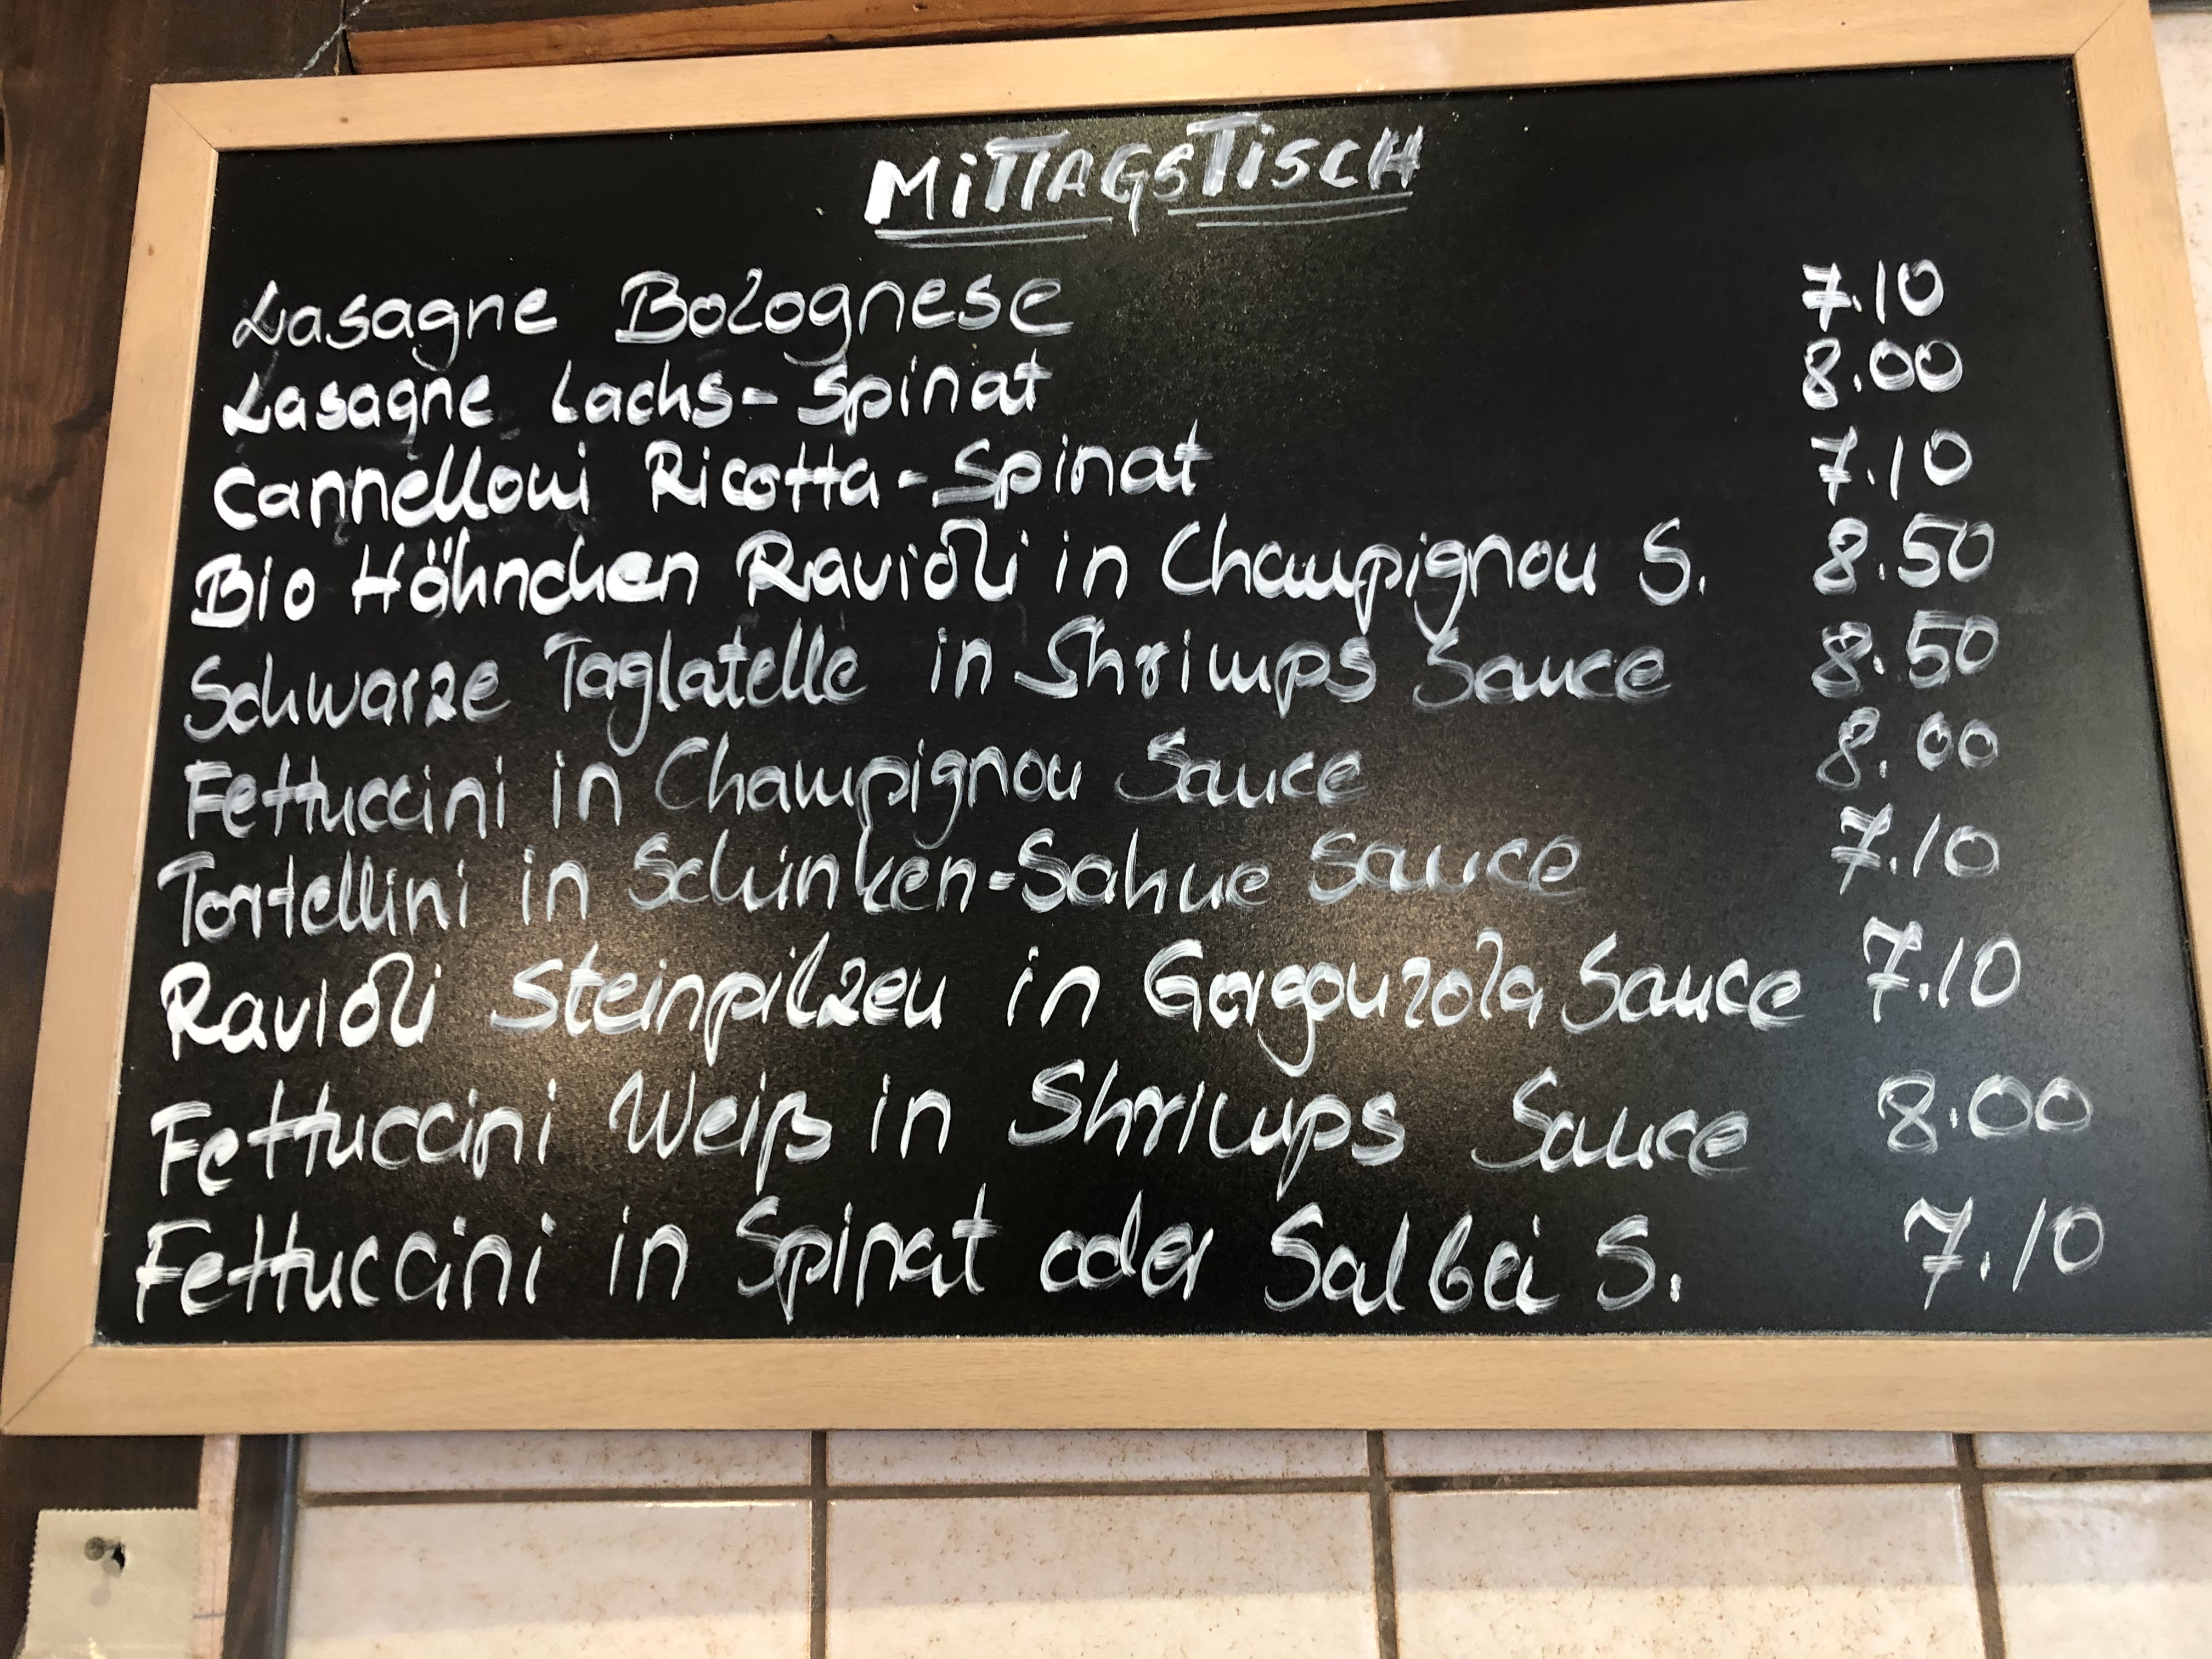 MiTTAGSTiSCH
Lasagne Bolognese 7.10
Lasagne Lachs-Spinat 8.00
Cannelloni Ricotta-Spinat 7.10
Bio Höhnchen Ravioli in Champignon S. 8.50
Schwarze Taglatelle in Shrimps Sauce 8.50
Fettuccini in Champignon Sauce 8.00
Tortellini in Schinken-Sahne Sauce 7.10
Ravioli Steinpilzen in Gorgonzola Sauce 7.10
Fettuccini Weiß in Shrimps Sauce 8.00
Fettuccini in Spinat oder Salbei S. 7.10